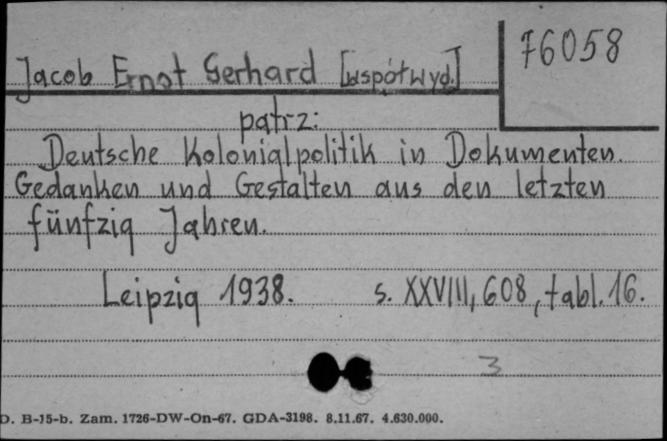 76058
Jacob Ernst Gerhard [współwyd.]
patrz:
Deutsche Kolonialpolitik in Dokumenten.
Gedanken und Gestalten aus den letzten
fünfzig Jahren.
Leipzig 1938. s. XXVIII, 608, tabl. 16.
3
D. B-15-b. Zam. 1726-DW-On-67. GDA-3198. 8.11.67. 4.630.000.